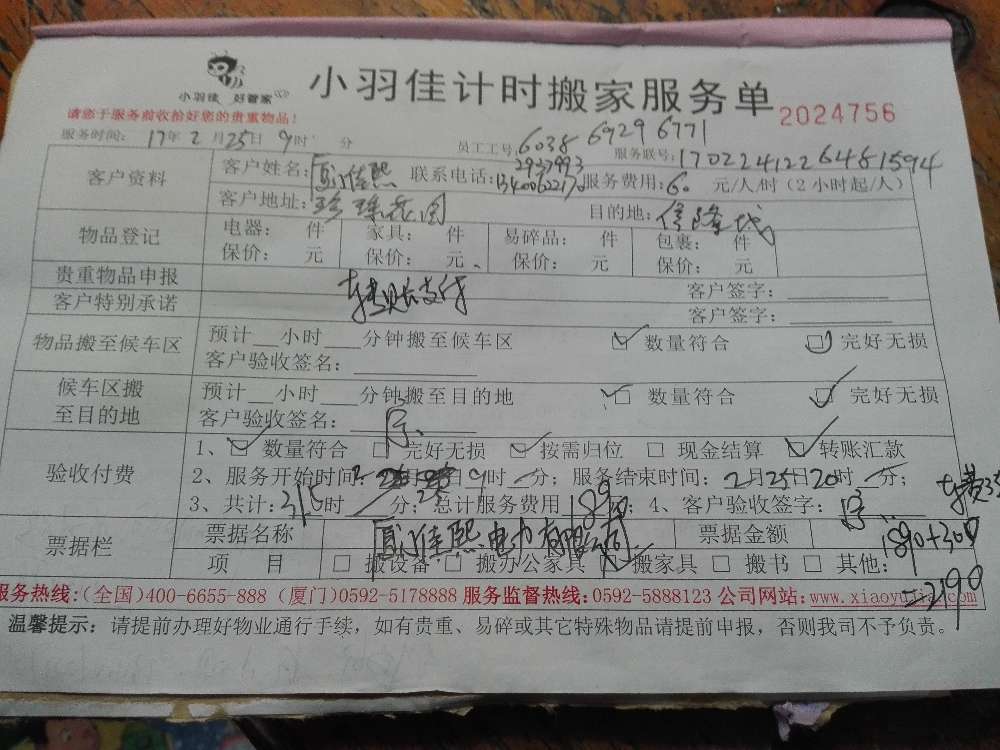 小羽佳 好管家
小羽佳计时搬家服务单
2024756
请您于服务前收拾好您的贵重物品!
服务时间: 17年 2月 25日 9时 分 员工工号: 6038 6929 6771 服务联号: 1702241226481594
客户资料 客户姓名: 厦门佳熙 联系电话: 2937993 服务费用: 60 元/人/时 (2小时起/人)
客户地址: 珍珠花园 目的地: 信隆城
物品登记 电器: 件 家具: 件 易碎品: 件 包裹: 件
保价: 元 保价: 元、 保价: 元 保价: 元
贵重物品申报 客户签字:
客户特别承诺 转账支付 客户签字:
物品搬至候车区 预计__小时___分钟搬至候车区 数量符合 完好无损
客户验收签名:
候车区搬 预计__小时___分钟搬至目的地 数量符合 完好无损
至目的地 客户验收签名:
验收付费 1、 数量符合 完好无损 按需归位 现金结算 转账汇款
2、服务开始时间: 2月 25日 9时 分; 服务结束时间: 2月25日20时 分;
3、共计: 31.5时 分; 总计服务费用 1890; 4、客户验收签字:
票据栏 票据名称 厦门佳熙电力有限公司 票据金额 1890+300
项 目 搬设备 搬办公家具 搬家具 搬书 其他: =2190
服务热线:(全国)400-6655-888 (厦门)0592-5178888 服务监督热线:0592-5888123 公司网站:www.xiaoyujia.com
温馨提示: 请提前办理好物业通行手续,如有贵重、易碎或其它特殊物品请提前申报,否则我司不予负责。